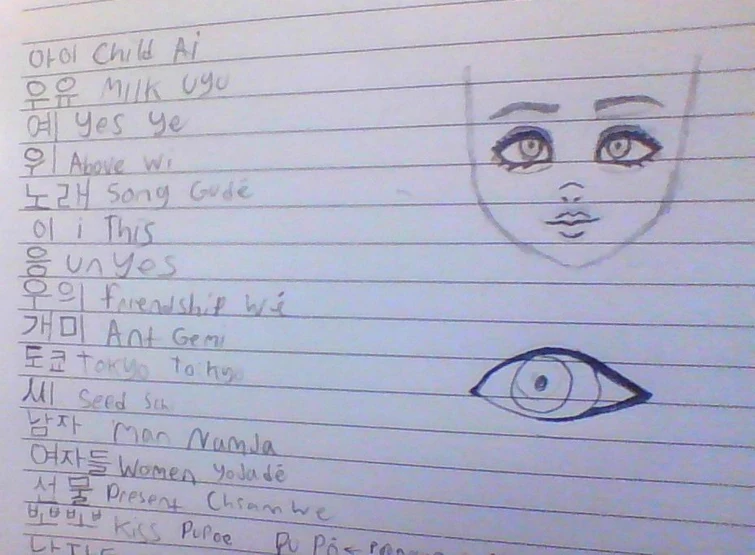 아이 Child Ai
우유 Milk Uyu
예 Yes Ye
위 Above Wi
노래 Song Gudé
이 i This
응 un yes
우의 friendship Wé
개미 Ant Gemi
도쿄 Tokyo
씨 Seed
남자 Man Namja
여자들 Women Yojadé
선물 Present
뽀뽀 Kiss Pupoe